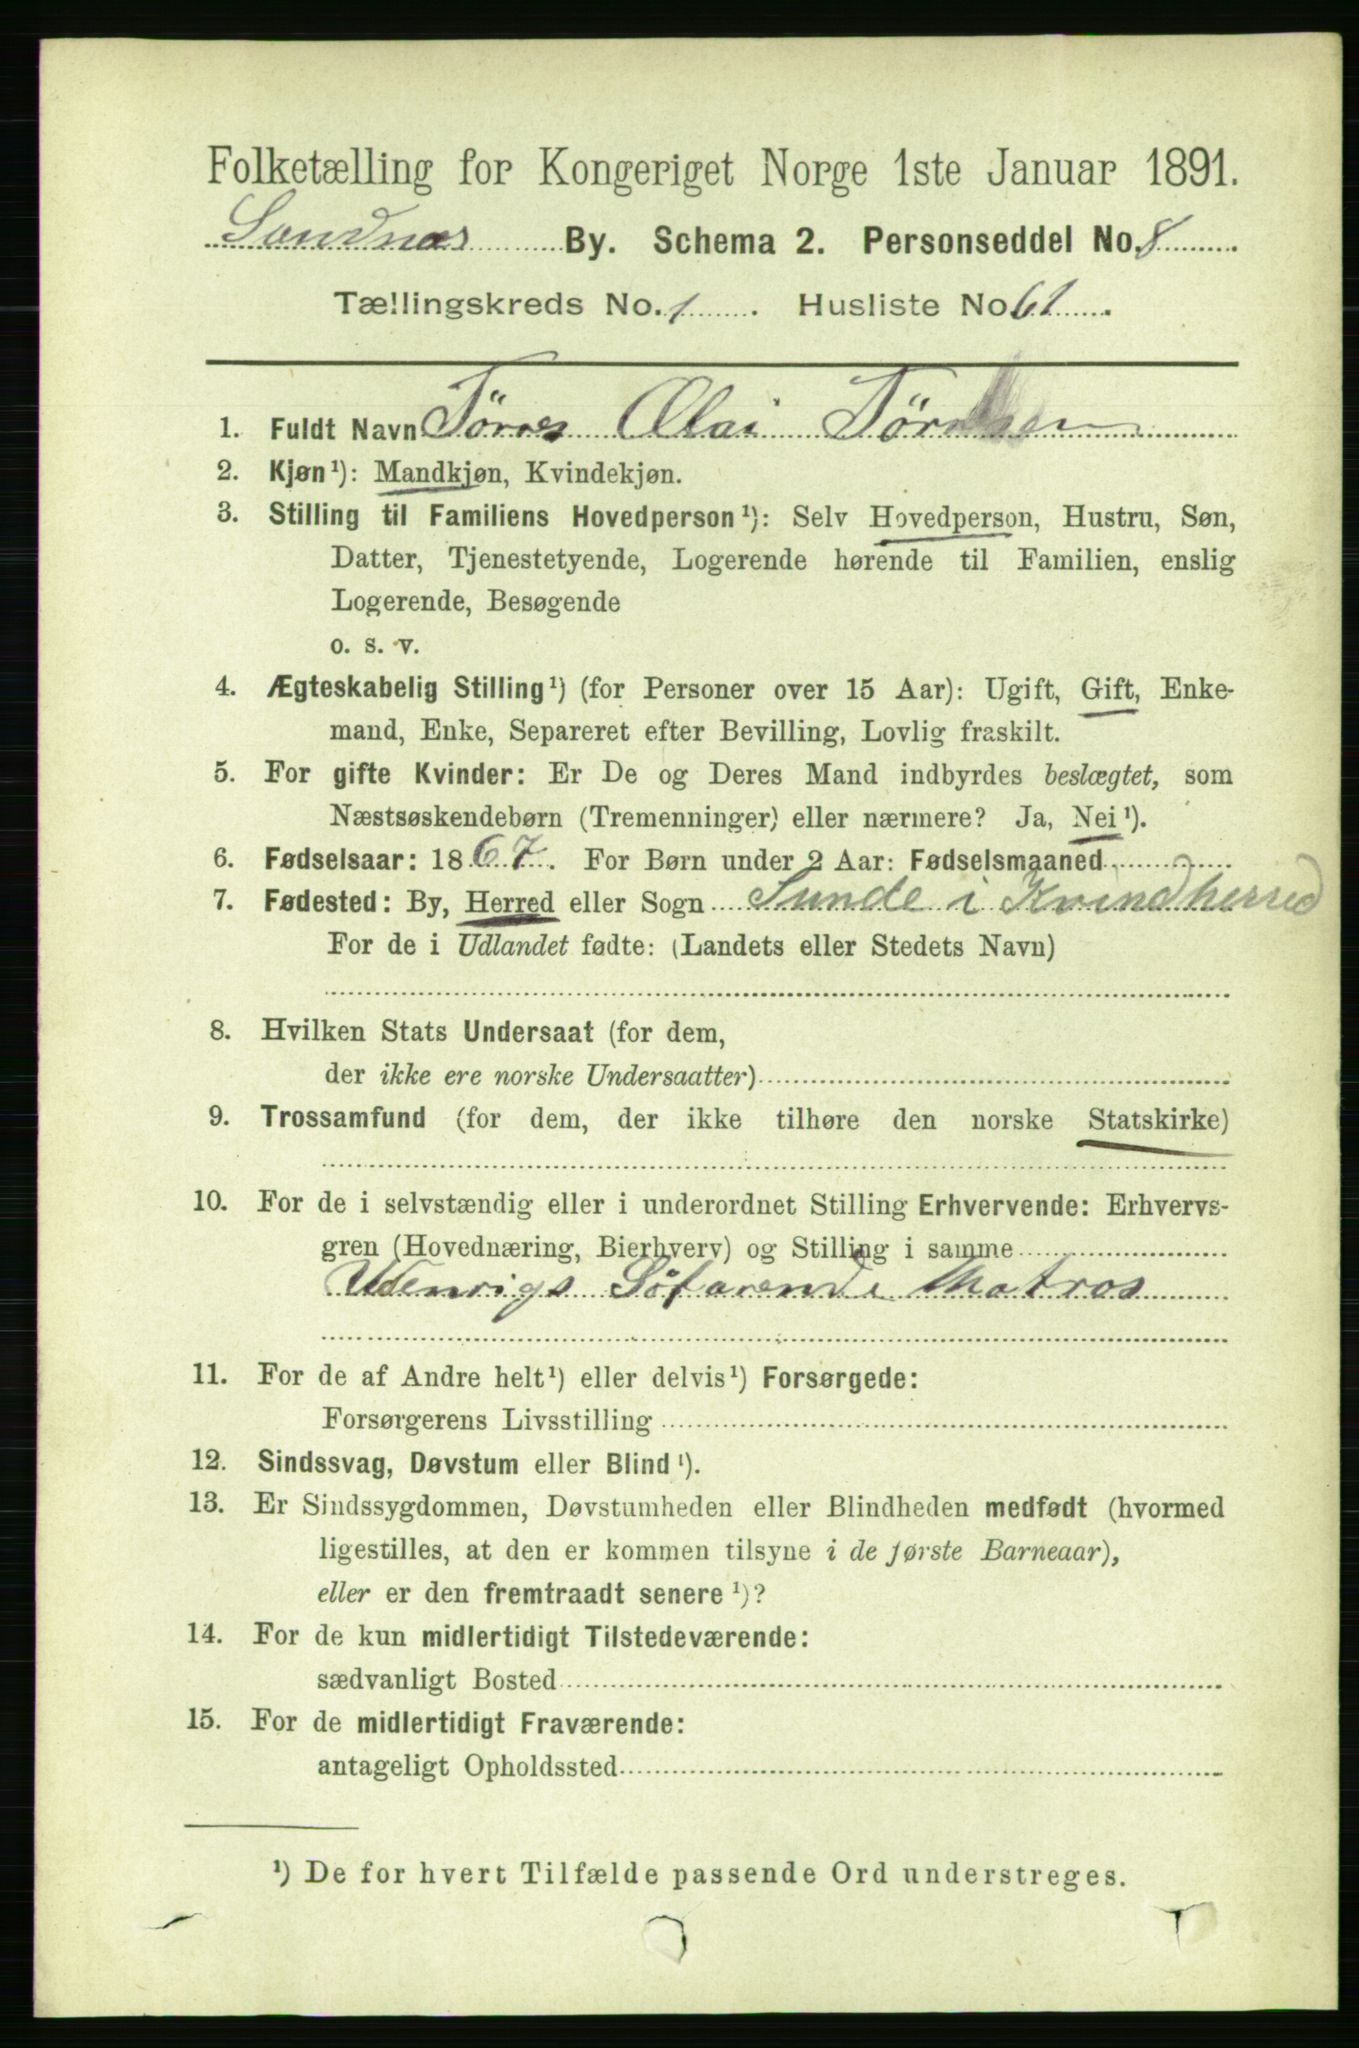 Folketælling for Kongeriget Norge 1ste Januar 1891.
Sandnæs By. Schema 2. Personseddel No. 8
Tællingskreds No. 1 . Husliste No 61 .
1. Fuldt Navn Törres Olai
2. Kjøn¹): Mandkjøn, Kvindekjøn.
3. Stilling til Familiens Hovedperson¹): Selv Hovedperson, Hustru, Søn,
Datter, Tjenestetyende, Logerende hørende til Familien, enslig
Logerende, Besøgende
o. s. v.
4. Ægteskabelig Stilling¹) (for Personer over 15 Aar): Ugift, Gift, Enke-
mand, Enke, Separeret efter Bevilling, Lovlig fraskilt.
5. For gifte Kvinder: Er De og Deres Mand indbyrdes beslægtet, som
Næstsøskendebørn (Tremenninger) eller nærmere? Ja, Nei¹).
6. Fødselsaar: 1867. For Børn under 2 Aar: Fødselsmaaned
7. Fødested: By, Herred eller Sogn Sunde i Kvindherred
For de i Udlandet fødte: (Landets eller Stedets Navn)
8. Hvilken Stats Undersaat (for dem,
der ikke ere norske Undersaatter)
9. Trossamfund (for dem, der ikke tilhøre den norske Statskirke)
10. For de i selvstændig eller i underordnet Stilling Erhvervende: Erhvervs-
gren (Hovednæring, Bierhverv) og Stilling i samme
Udenrigs Söfarende Matros
11. For de af Andre helt¹) eller delvis¹) Forsørgede:
Forsørgerens Livsstilling
12. Sindssvag, Døvstum eller Blind¹).
13. Er Sindssygdommen, Døvstumheden eller Blindheden medfødt (hvormed
ligestilles, at den er kommen tilsyne i de første Barneaar),
eller er den fremtraadt senere¹)?
14. For de kun midlertidigt Tilstedeværende:
sædvanligt Bosted
15. For de midlertidigt Fraværende:
antageligt Opholdssted
¹) De for hvert Tilfælde passende Ord understreges.